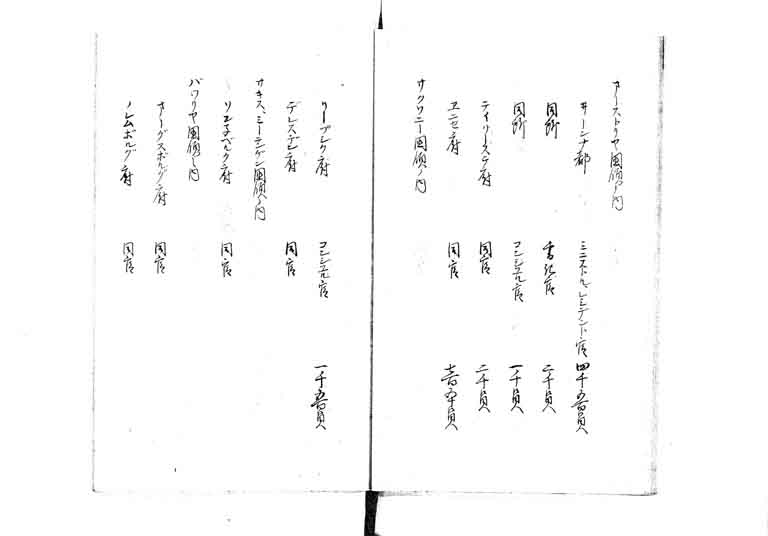 オーストリヤ國領ノ内
井ーンナ都 ミニストル、レシデント官 四千五百員
同所 書記官 二千員
同所 コンシュル官 一千員
ティリーステ府 同官 二千員
ヱニセ府 同官 七百五十員
サクソニー國領ノ内
リープシク府 コンシュル官 一千五百員
デレスデン府 同官
サキス、ミーニンゲン國領ノ内
ソンネベルク府 同官
バワリヤ國領ノ内
オーグスボルグ府 同官
ノレムボルグ府 同官